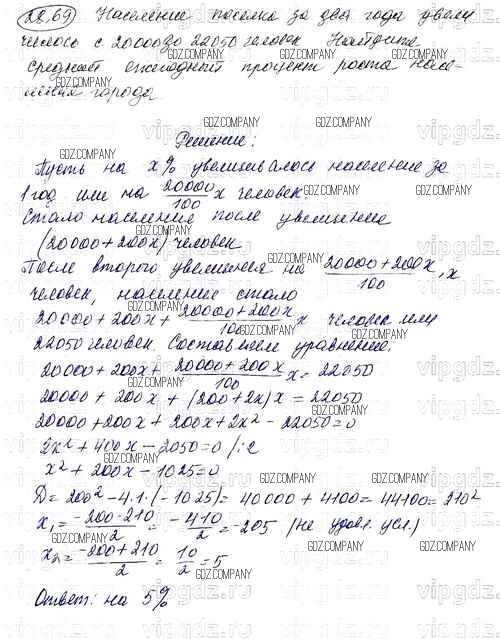 28.69) Население поселка за два года увели
чилось с 20000 до 22050 человек Найдите
средний ежегодный процент роста насе-
ления города
Решение:
Пусть на x% увеличивалось население за
1 год или на 20000/100 x человек.
Стало население после увеличения
(20000+200x) человек
После второго увеличения на (20000+200x)/100 · x
человек, население стало
20000+200x+ (20000+200x)/100 x человек или
22050 человек. Составляем уравнение.
20000+200x+ (20000+200x)/100 x = 22050
20000+200x+(200+2x)x=22050
20000+200x+200x+2x²-22050=0
2x²+400x-2050=0 /:2
x²+200x-1025=0
D=200²-4·1·(-1025)=40000+4100=44100=210²
x₁= (-200-210)/2 = -410/2 = -205 (не удовл. усл.)
x₂= (-200+210)/2 = 10/2 = 5
Ответ: на 5%
GDZ.COMPANY
vipgdz.ru